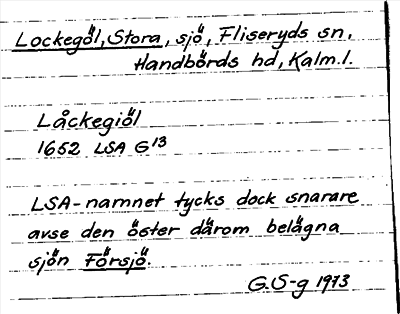 Lockegöl, Stora, sjö, Fliseryds sn,
Handbörds hd, Kalm.l.
Låckegiöl
1652 LSA G13
LSA-namnet tycks dock snarare
avse den öster därom belägna
sjön Försjö.
G.S-g 1973